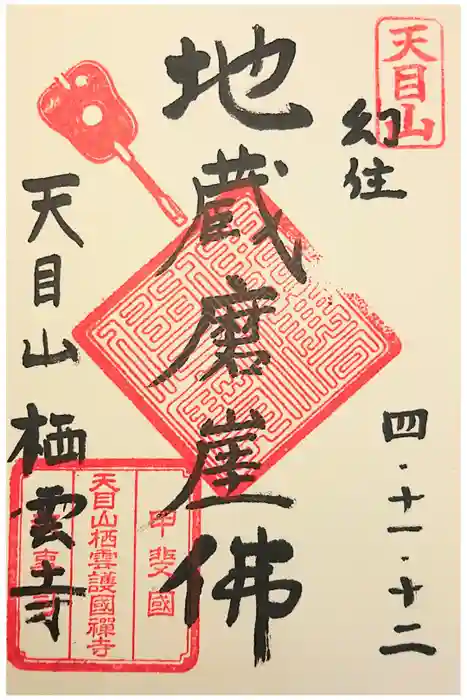 天目山
幻住
四・十一・十二
地蔵磨崖佛
天目山栖雲寺
甲斐國
天目山栖雲護國禪寺